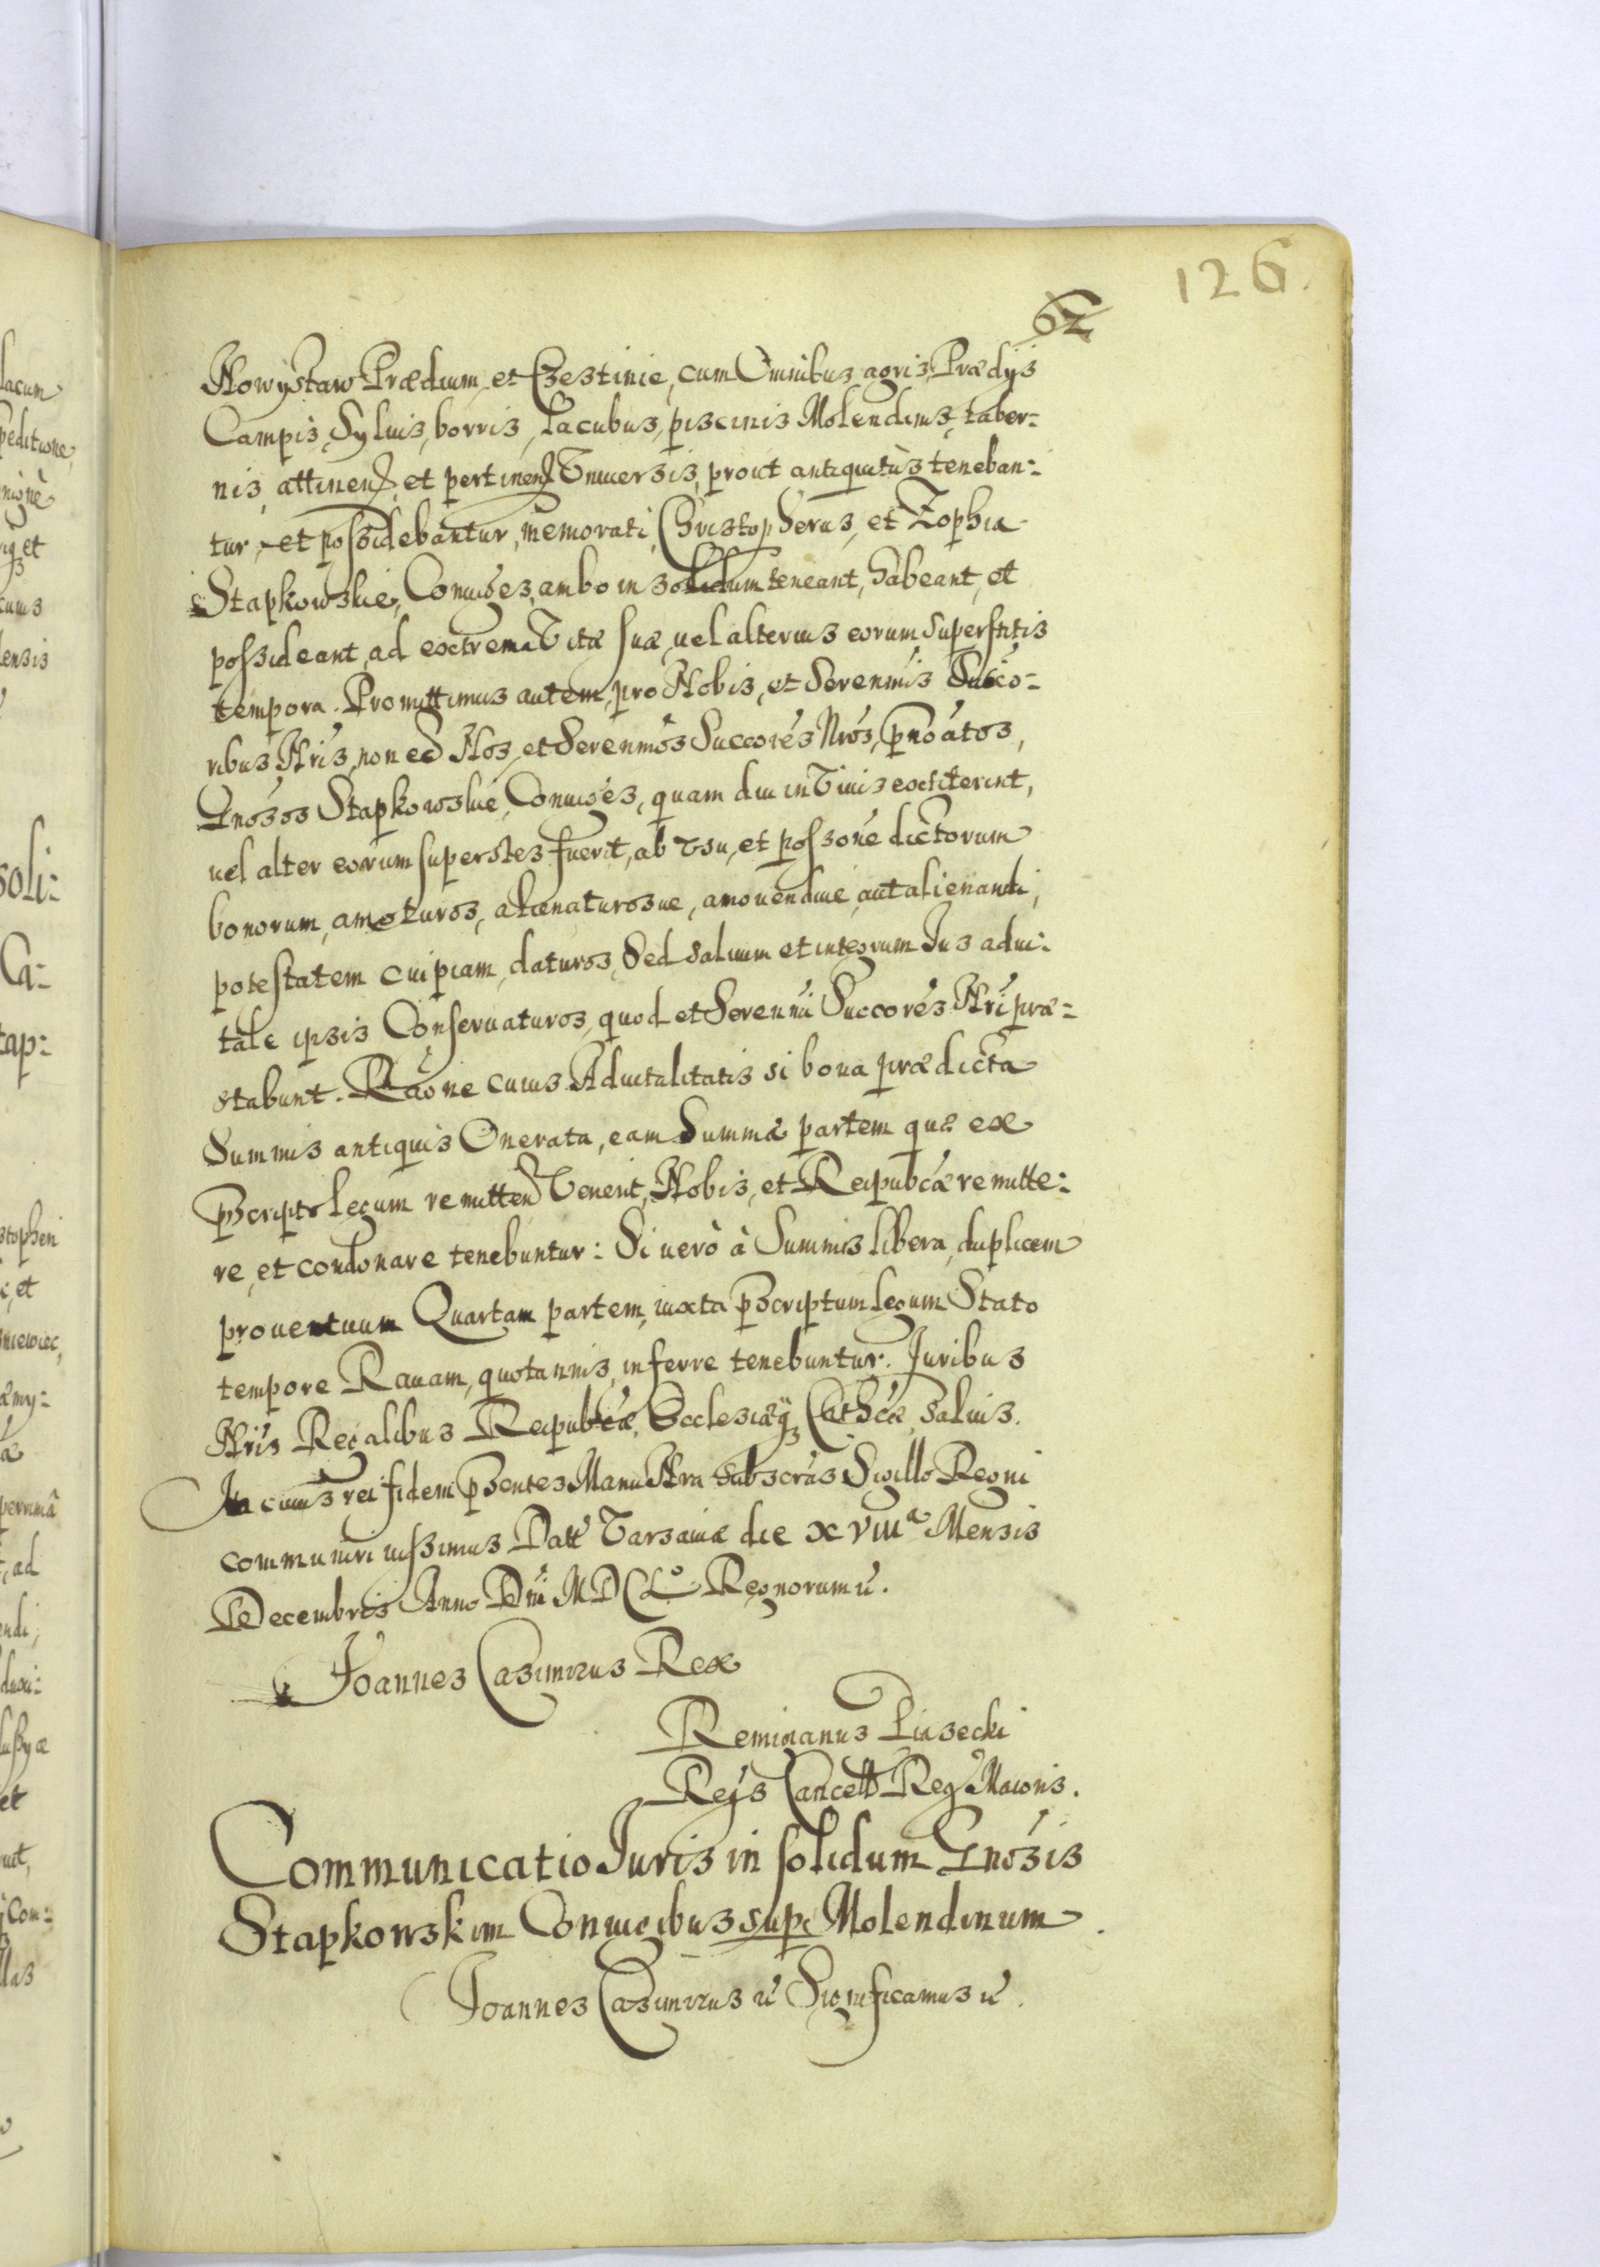 126.
62
Nowystaw Prædium et Czestinie, cum Omnibus agris, Prædijs
Campis, Syluis, borris, Lacubus, piscinis Molendinis, taber=
nis, attinen, et pertinen Vniuersis, prout antiquitùs teneban=
tur, et possidebantur, memorati, Christopherus, et Zophia
Stapkowskie, Coniuges, ambo in solidum teneant, habeant, et
possideant, ad extrema Vitæ suæ, uel alterius eorum superstitis
tempora. Promittimus autem, pro Nobis, et Serenmis Succo=
ribus Nris, non ee Nos, et Serenmos Succores Nros, pnoatos,
Gnosos Stapkowskie, Coniuges, quam diu in Viuis extiterint,
uel alter eorum superstes fuerit, ab Vsu, et possone dictorum
bonorum, amoturos, alienaturosue, amouendiue, aut alienandi,
potestatem cuipiam, daturos, Sed saluum et integrum Jus adui=
tale ipsis Conseruaturos, quod et Serenmi Succores Nri præ=
stabunt. Raone cuius Aduitalitatis si bona prædicta
Summis antiquis Onerata, eam Summæ partem quæ ex
pscripto legum remitten Venerit, Nobis, et Reipubcæ remitte=
re, et condonare tenebuntur: Si uerò à Summis libera, duplicem
prouentuum Quartam partem, iuxta pscriptum legum Stato
tempore Rauam, quotannis, inferre tenebuntur. Juribus
Nris Regalibus Reipubcæ, Ecclesiæq Cathcæ, saluis.
In cuius rei fidem psentes Manu Nra subscras Sigillo Regni
communiri iussimus Datt Varsauiæ die XVIIIa Mensis
Decembris Anno Dni MDCLo Regnorum ū.
Joannes Casimirus Rex
Remigianus Piasecki
Regs Cancell Reg Maioris.
Communicatio Juris in solidum Gnosis
Stapkowskim Coniugibus supr Molendinum.
Joannes Casimirus ū Significamus ū.